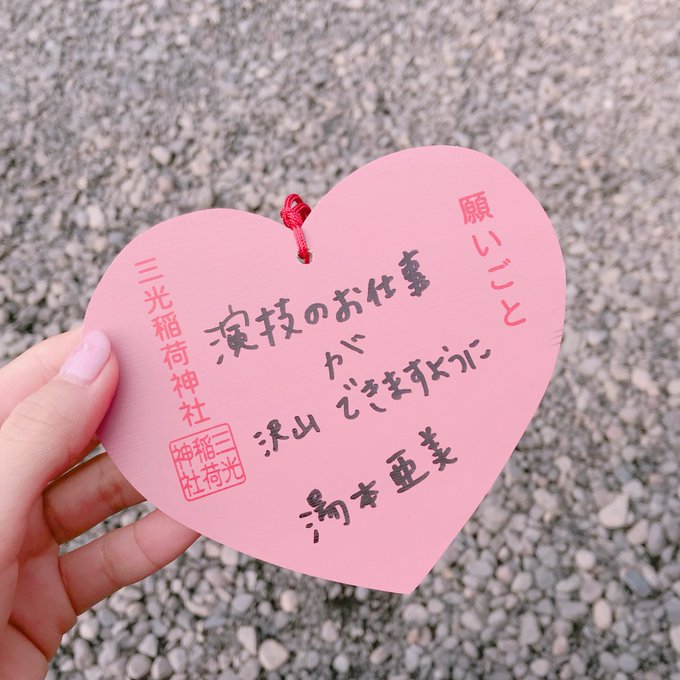 願いごと
演技のお仕事
が
沢山 できますように
湯本亜美
三光稲荷神社
三光
稲荷
神社